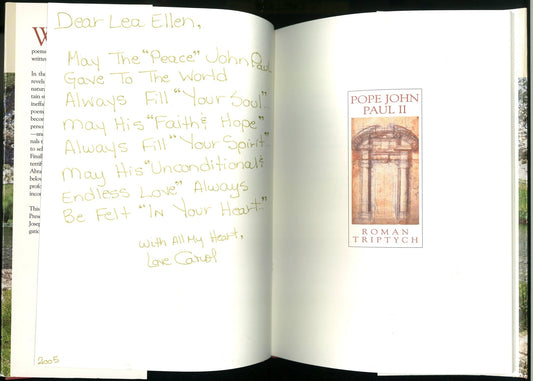 Dear Lea Ellen,
May The "Peace" John Paul
Gave To The World
Always Fill "Your Soul"...
May His "Faith & Hope"
Always Fill "Your Spirit"...
May His "Unconditional &
Endless Love" Always
Be Felt "In Your Heart..."
With All My Heart,
Love Carol
2005
W
poems
written
In the
revela
natur
tain s
ineffa
poem
becom
perso
nals t
to sel
Finall
terrifi
Abra
belov
profo
incar
This
Prese
Josep
gatio
POPE JOHN
PAUL II
ROMAN
TRIPTYCH